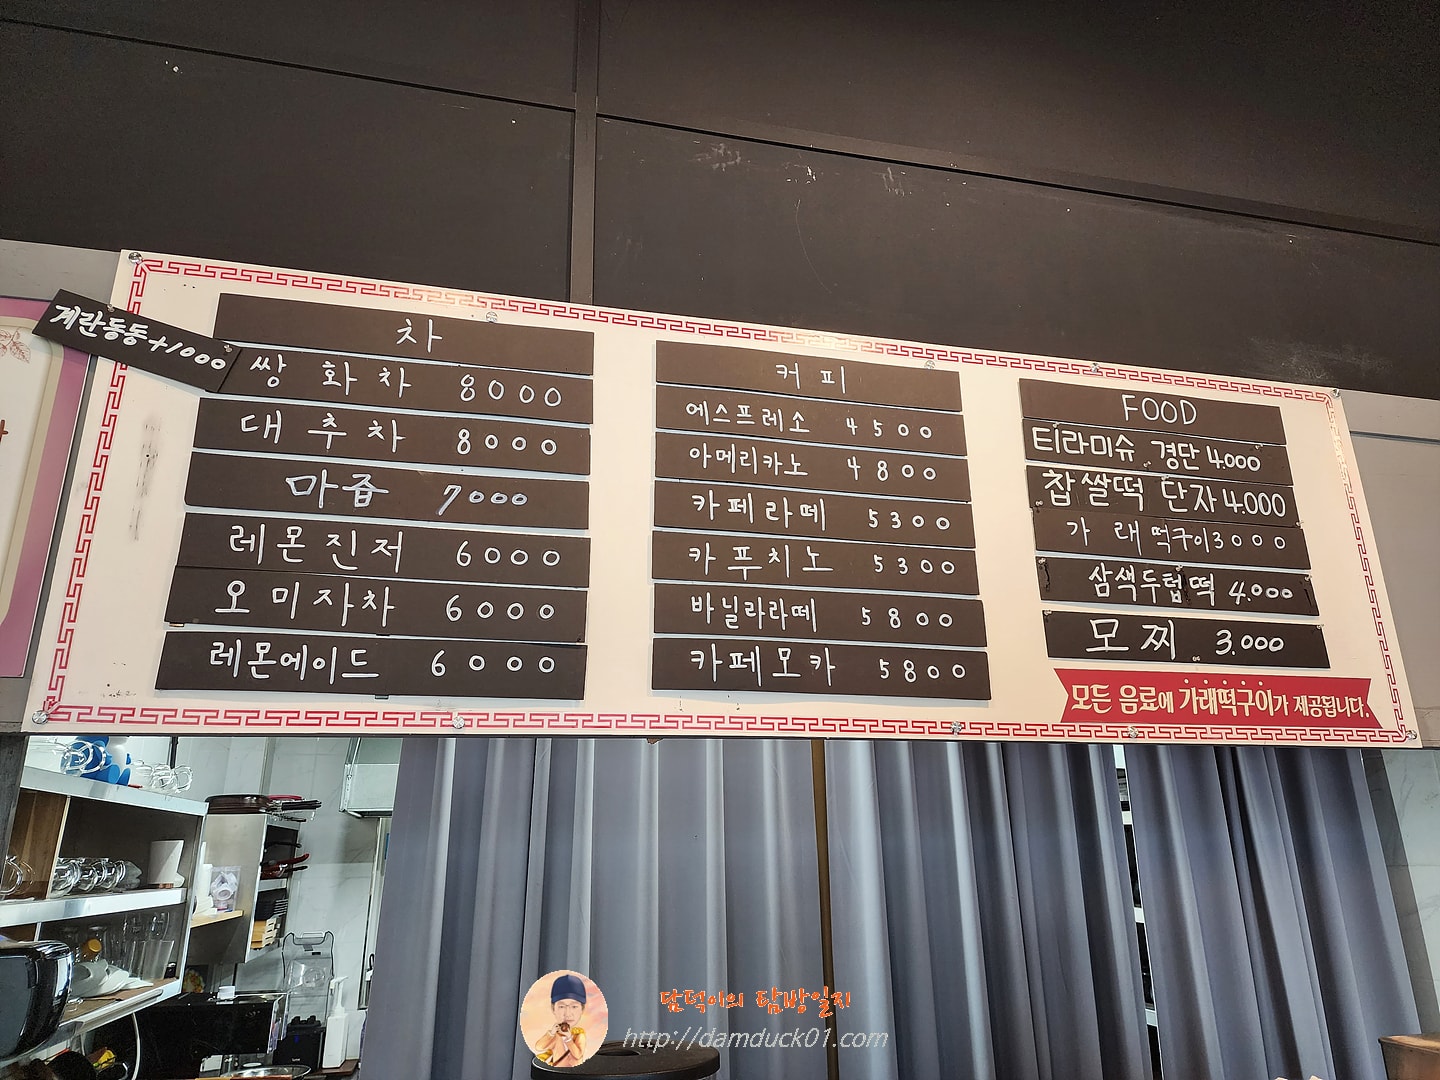 계란동동+1000
차
쌍화차 8000
대추차 8000
마즙 7000
레몬진저 6000
오미자차 6000
레몬에이드 6000
커피
에스프레소 4500
아메리카노 4800
카페라떼 5300
카푸치노 5300
바닐라라떼 5800
카페모카 5800
FOOD
티라미슈 경단 4.000
찹쌀떡 단자 4.000
가래떡구이 3000
삼색두텁떡 4.000
모찌 3.000
모든 음료에 가래떡구이가 제공됩니다.
담덕이의 탐방일지
http://damduck01.com